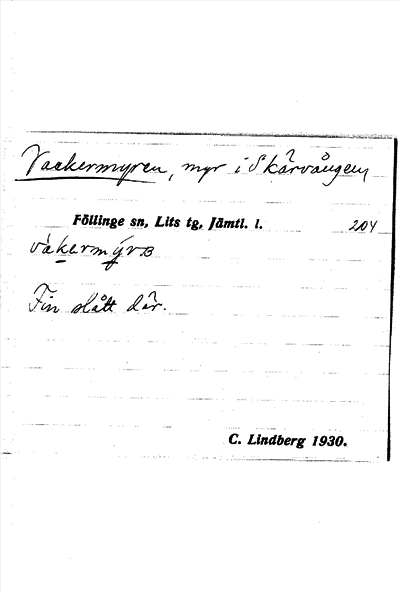 Vackermyren, myr i Skärvången,
Föllinge sn, Lits tg, Jämtl. l. 204
vàkermýrʙ
Fin slått där.
C. Lindberg 1930.